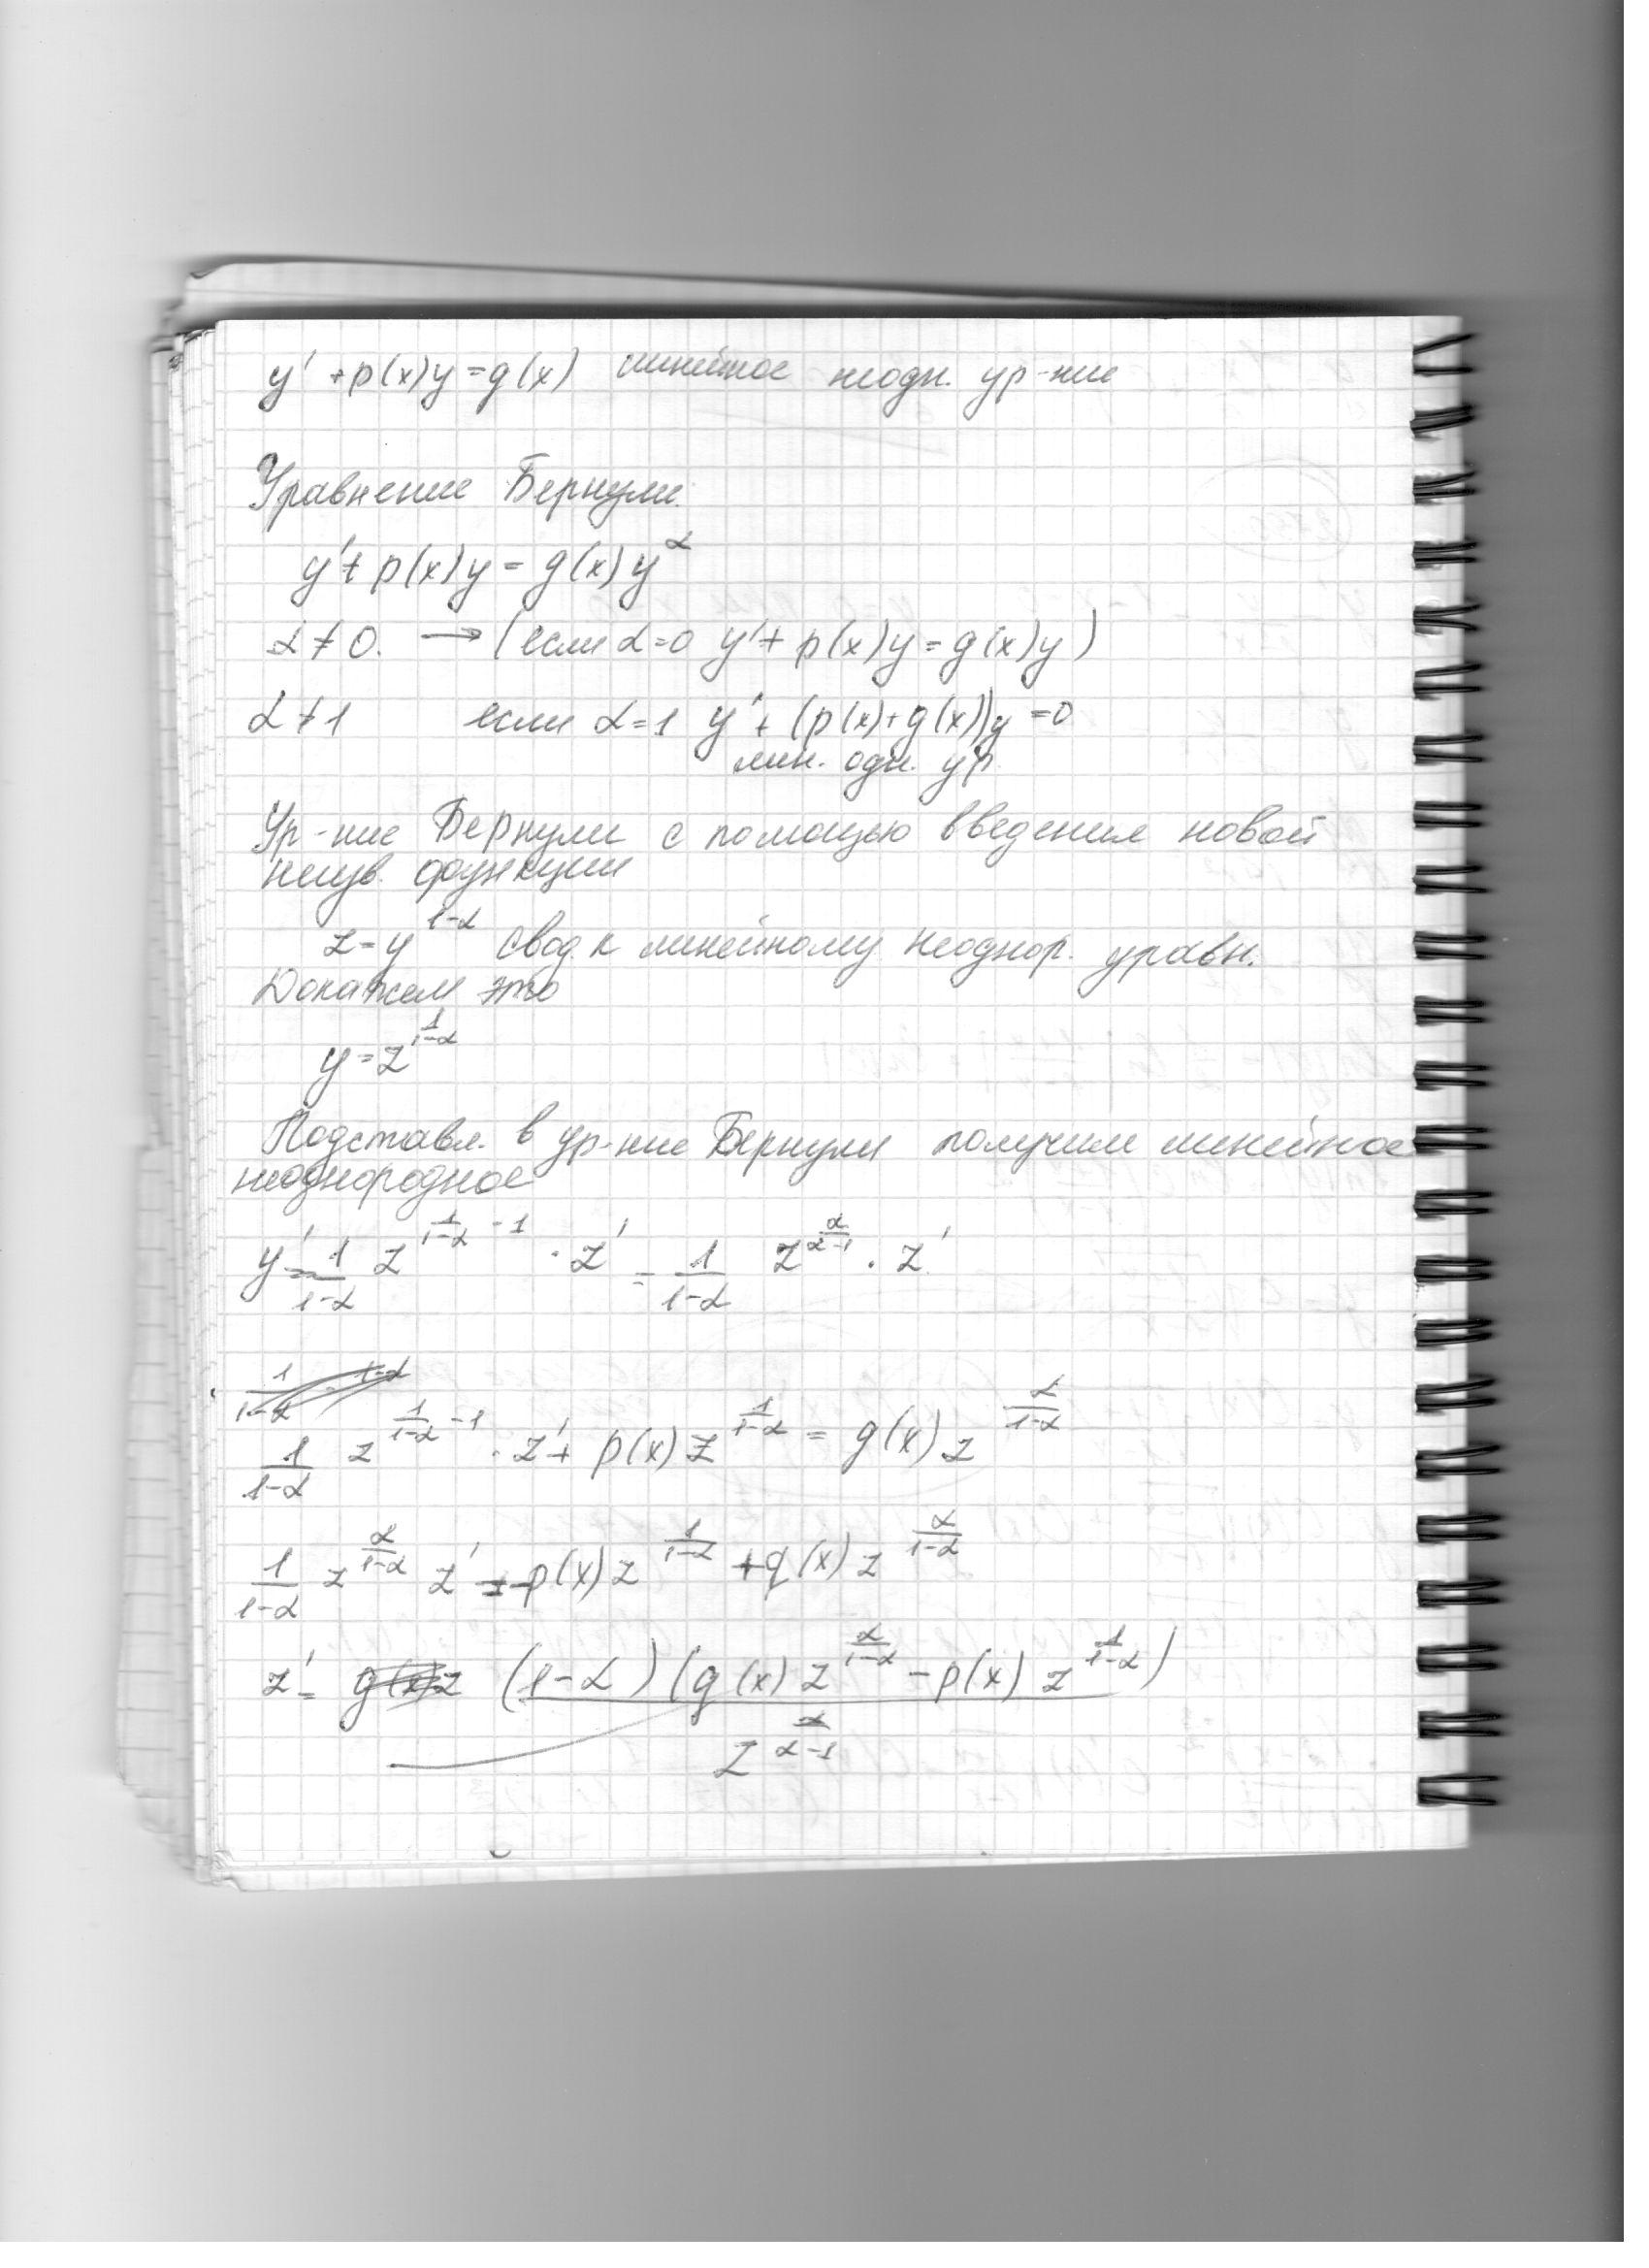 y' + p(x)y = g(x) линейное неодн. ур-ние
Уравнение Бернули.
y' + p(x)y = g(x)y^α
α ≠ 0. → (если α=0 y' + p(x)y = g(x)y)
α ≠ 1 если α=1 y' + (p(x)+g(x))y = 0
лин. одн. ур.
Ур-ние Бернули с помощью введения новой
неизв. функции
z = y^(1-α) свод. к линейному неоднор. уравн.
Докажем это
y = z^(1/(1-α))
Подставл. в ур-ние Бернули получим линейное
неоднородное
y' = 1/(1-α) z^(1/(1-α) - 1) · z' = 1/(1-α) z^(α/(α-1)) · z'
1/(1-α) z^(1/(1-α) - 1) · z' + p(x) z^(1/(1-α)) = g(x) z^(α/(1-α))
1/(1-α) z^(α/(1-α)) z' = -p(x) z^(1/(1-α)) + q(x) z^(α/(1-α))
z' = (1-α)(g(x) z^(α/(1-α)) - p(x) z^(1/(1-α))) / z^(α/(α-1))